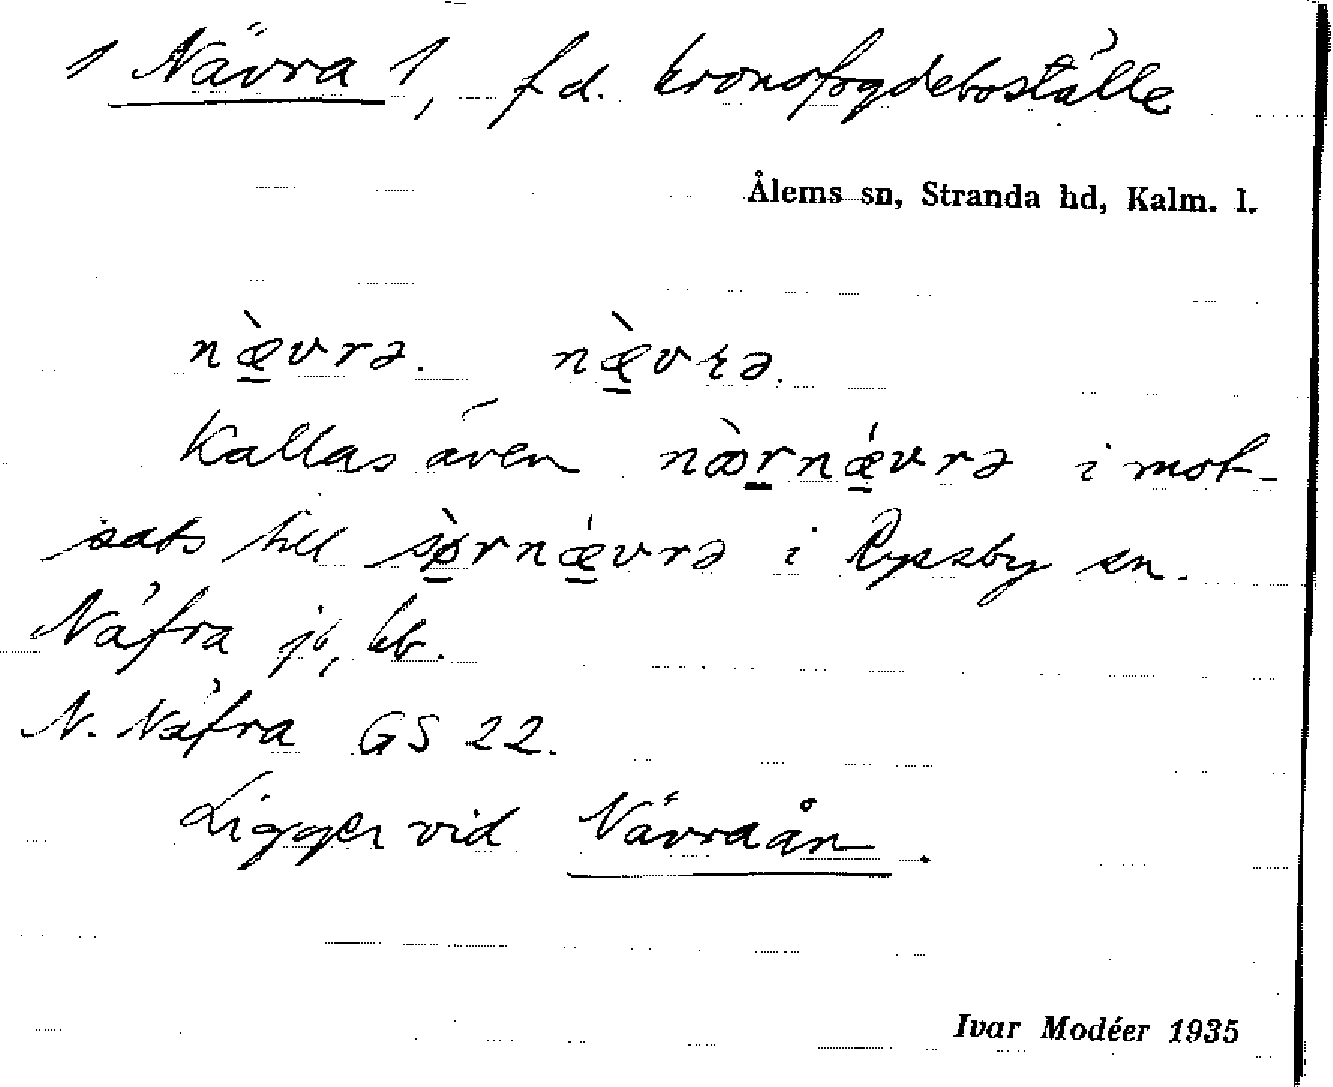 1 Nävra 1, f d. kronofogdeboställe
Ålems sn, Stranda hd, Kalm. l.
næ̠̀vrə. næ̠̀vɽə.
Kallas även nòr̠nǽ̠vrə i mot-
sats till sø̠̀rnǽ̠vrə i Ryssby sn.
Näfra jb, kb.
N. Näfra GS 22.
Ligger vid Nävraån.
Ivar Modéer 1935